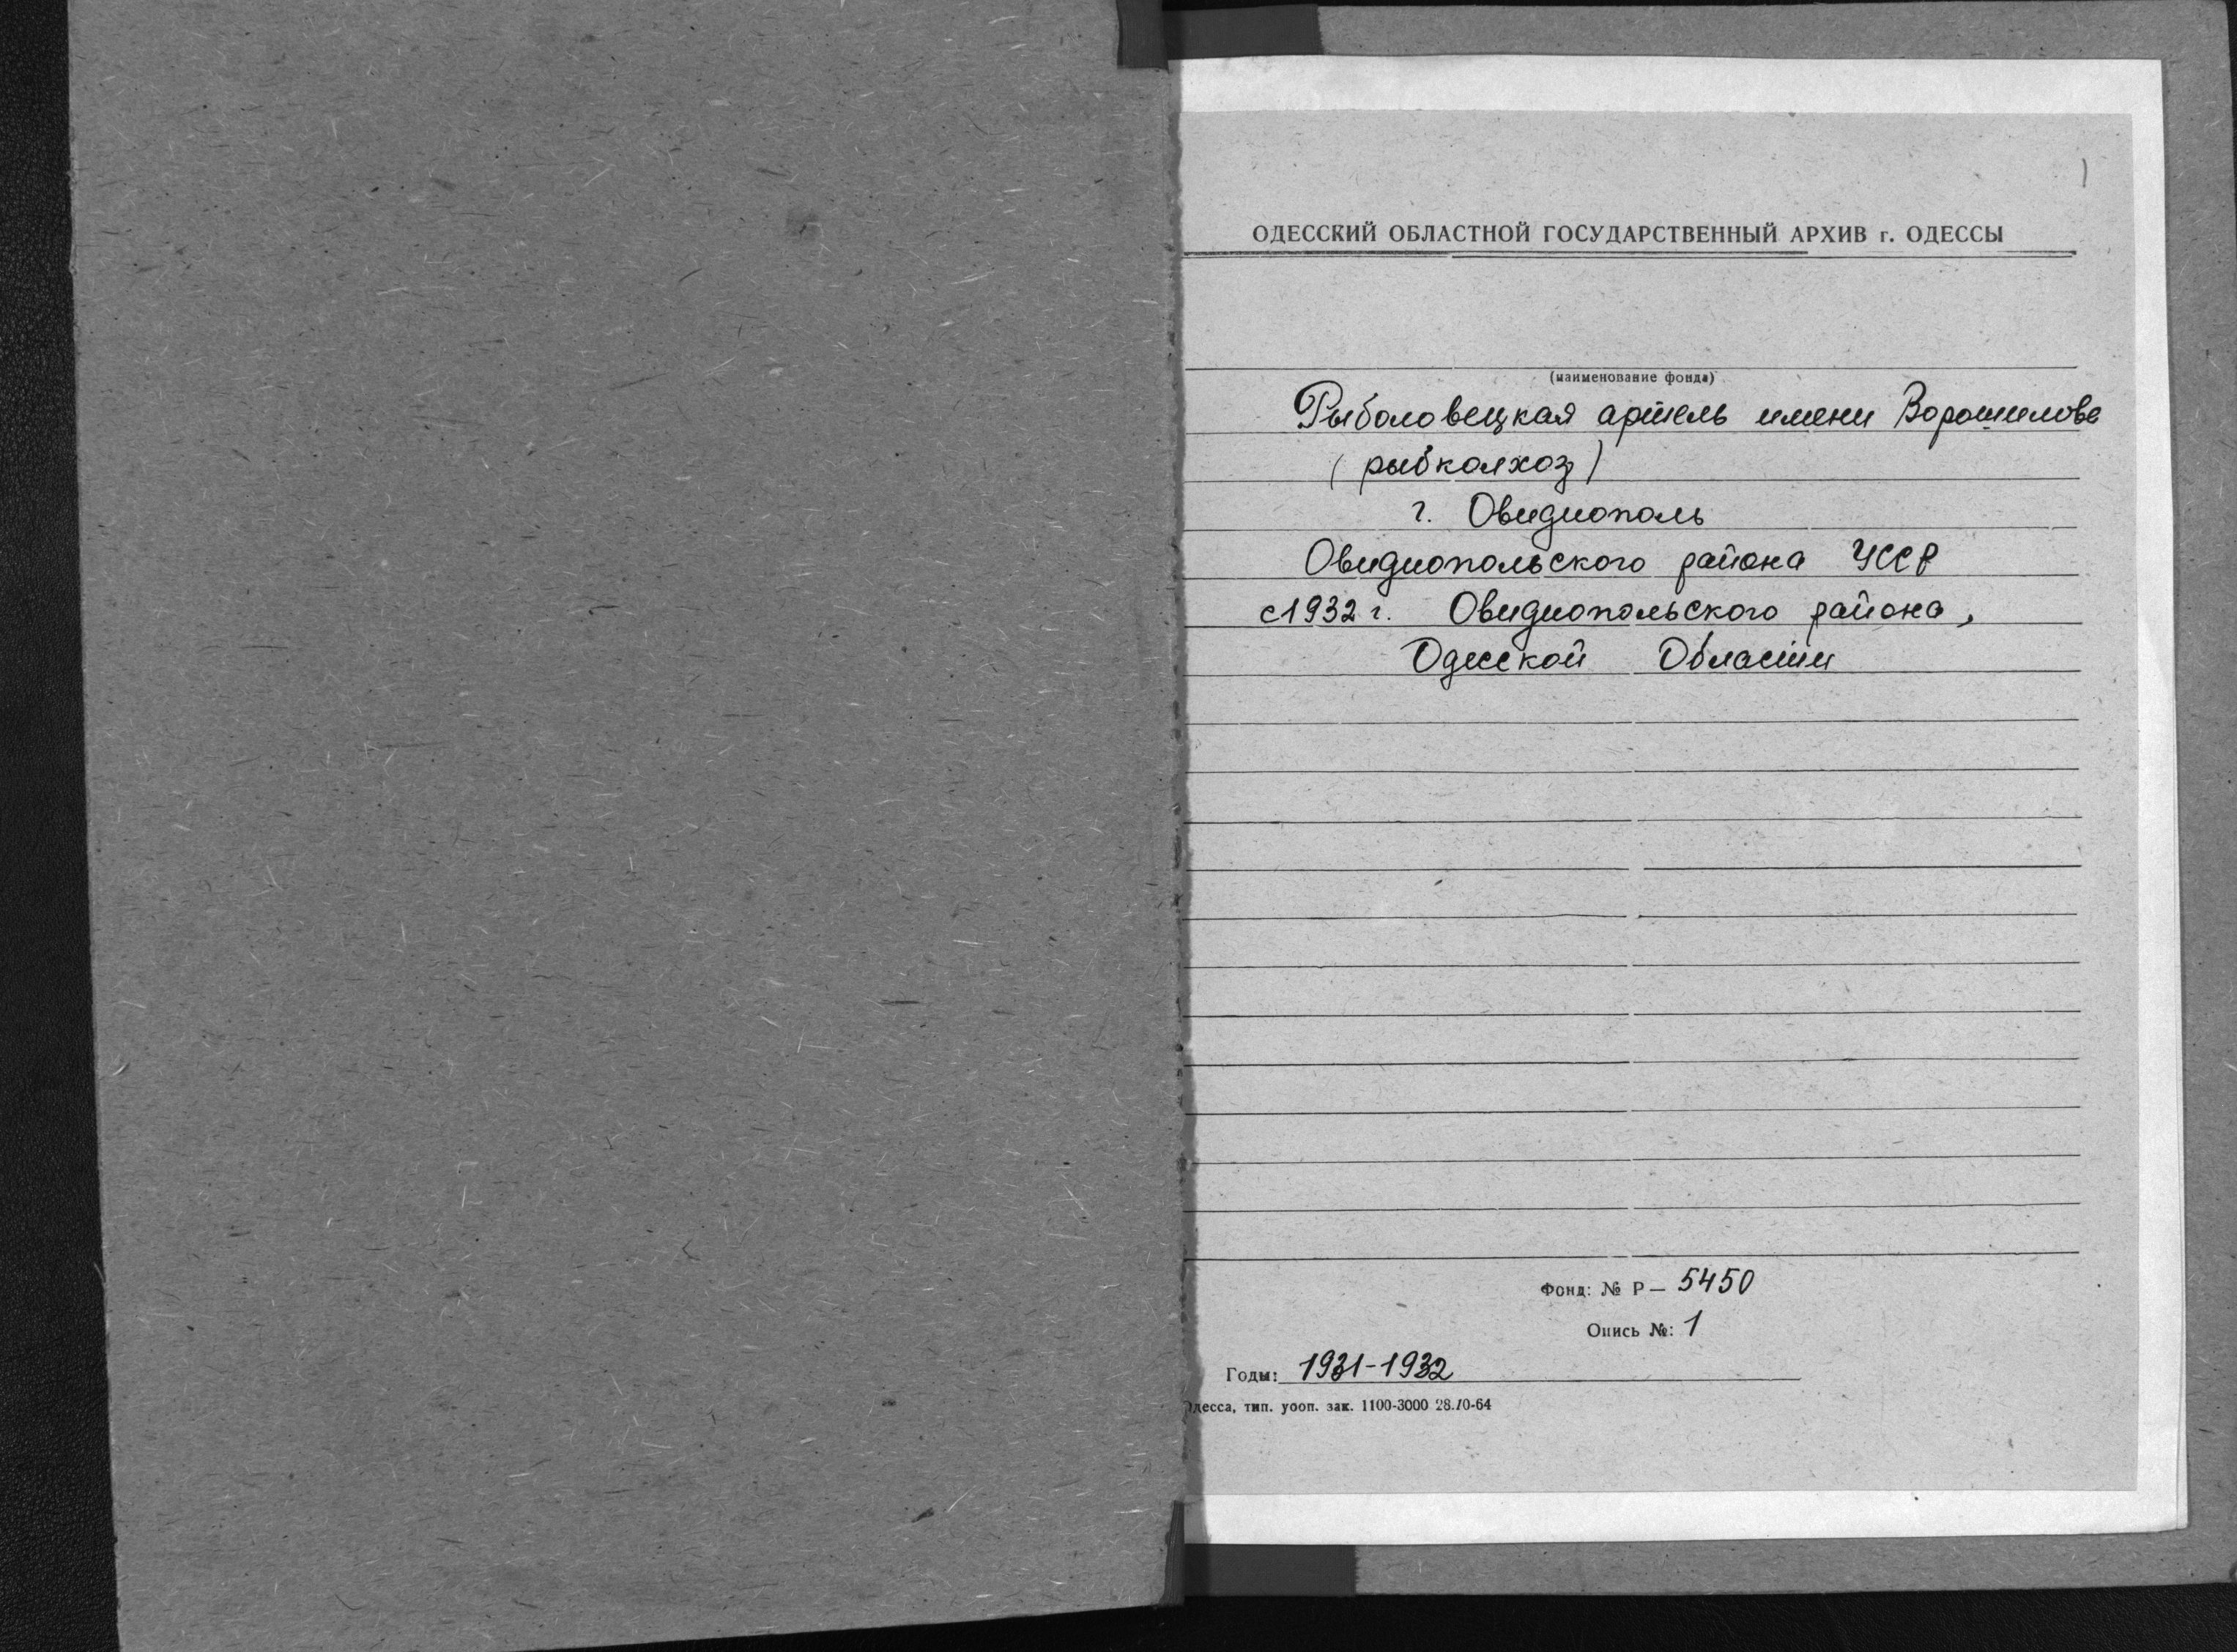 1
ОДЕССКИЙ ОБЛАСТНОЙ ГОСУДАРСТВЕННЫЙ АРХИВ г. ОДЕССЫ
(наименование фонда)
Рыболовецкая артель имени Ворошилова
(рыбколхоз)
г. Овидиополь
Овидиопольского района УССР
с 1932 г. Овидиопольского района,
Одесской Области
Фонд: № Р — 5450
Опись №: 1
Годы: 1931-1932
Одесса, тип. уооп. зак. 1100-3000 28.10-64